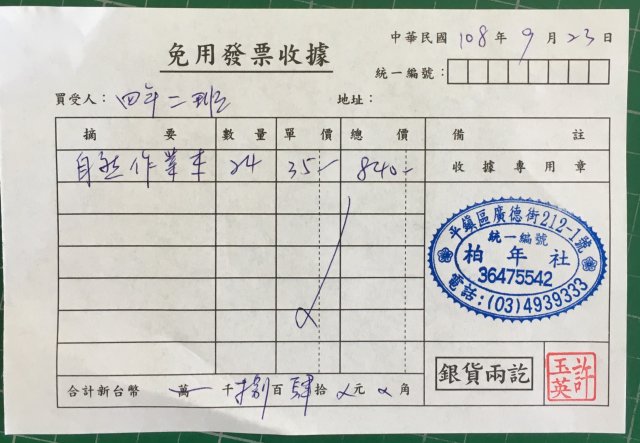 免用發票收據
中華民國 108 年 9 月 23 日
統一編號：
買受人： 四年二班
地址：
摘 要 數 量 單 價 總 價 備 註
自然作業本 24 35.- 840.- 收據專用章
平鎮區廣德街212-1號
統一編號
柏年社
36475542
電話：(03)4939333
合計新台幣 萬 千 捌 百 肆 拾 元 角
銀貨兩訖
許玉英